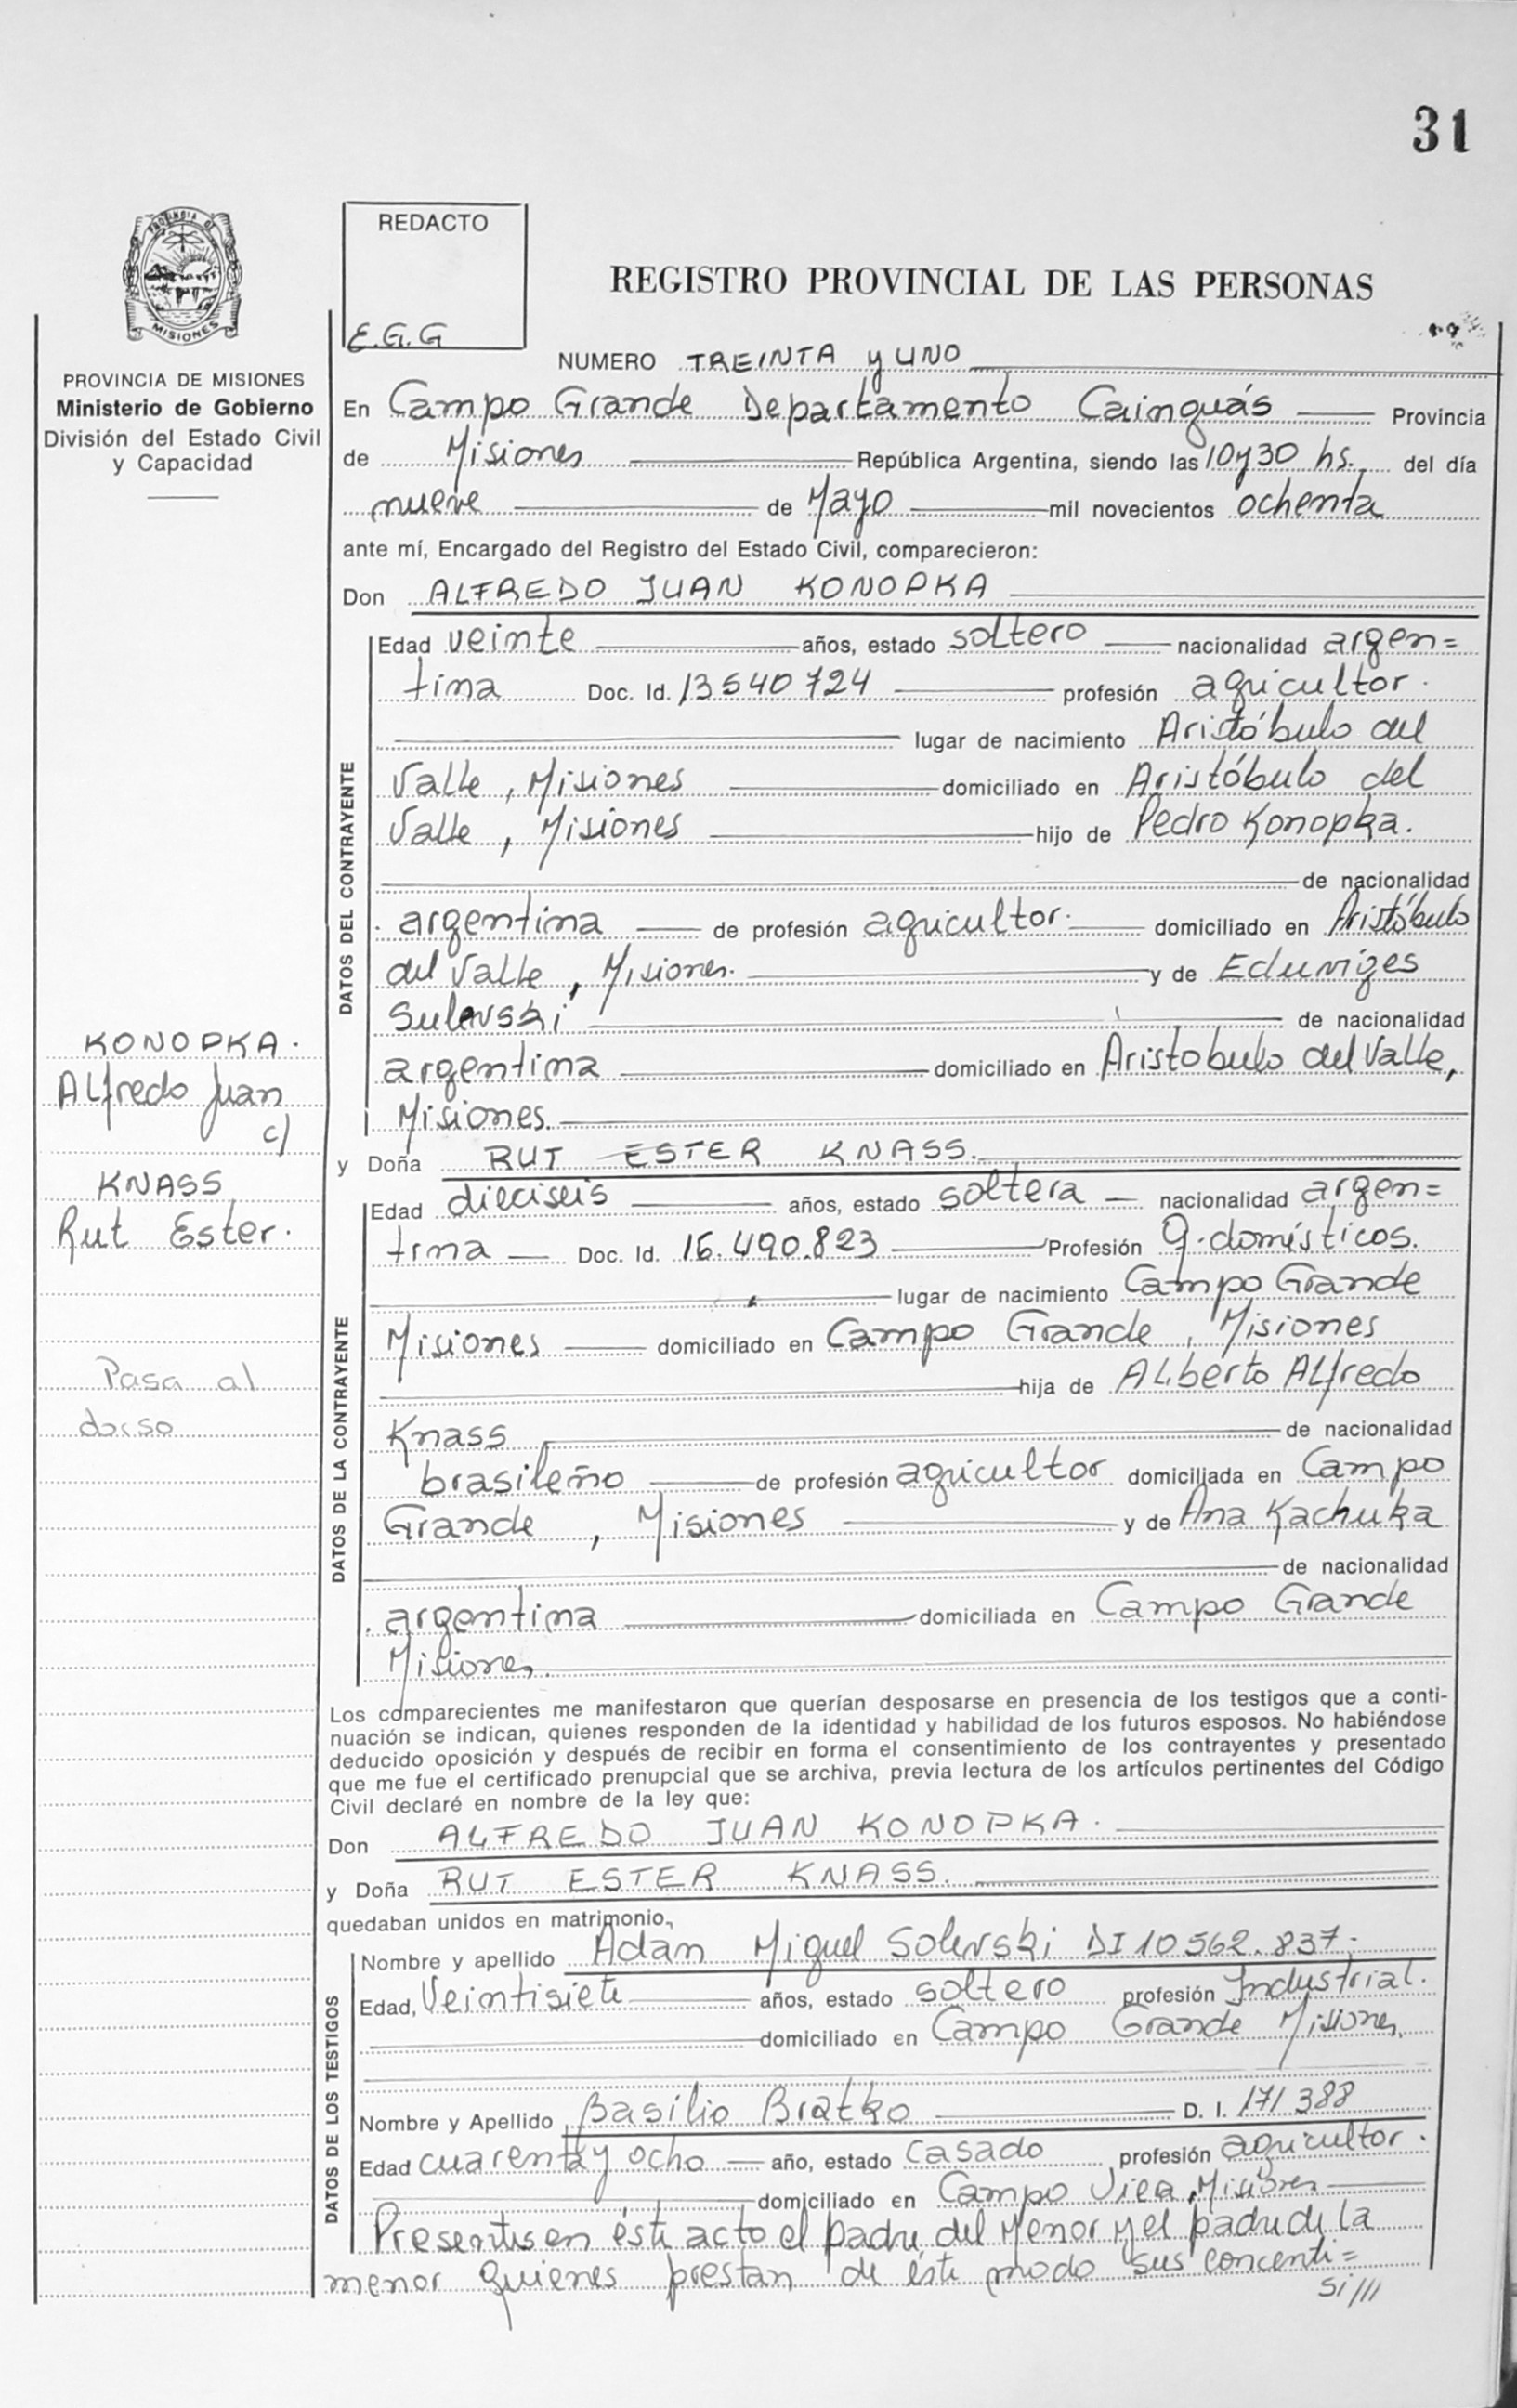 31
PROVINCIA DE
MISIONES
PROVINCIA DE MISIONES
Ministerio de Gobierno
División del Estado Civil
y Capacidad
REDACTO
E.G.G
REGISTRO PROVINCIAL DE LAS PERSONAS
NUMERO TREINTA y UNO
En Campo Grande Departamento Cainguás Provincia
de Misiones República Argentina, siendo las 10y30 hs. del día
nueve de Mayo mil novecientos ochenta
ante mí, Encargado del Registro del Estado Civil, comparecieron:
Don ALFREDO JUAN KONOPKA
DATOS DEL CONTRAYENTE
Edad veinte años, estado soltero nacionalidad argen=
tina Doc. Id. 13540724 profesión agricultor.
lugar de nacimiento Aristóbulo del
Valle, Misiones domiciliado en Aristóbulo del
Valle, Misiones hijo de Pedro Konopka.
de nacionalidad
argentina de profesión agricultor. domiciliado en Aristóbulo
del Valle, Misiones. y de Eduviges
Sulevski de nacionalidad
argentina domiciliado en Aristobulo del Valle,
Misiones.
KONOPKA.
Alfredo Juan
c/
KNASS
Rut Ester.
Pasa al
dorso
y Doña RUT ESTER KNASS.
DATOS DE LA CONTRAYENTE
Edad dieciseis años, estado soltera nacionalidad argen=
tina Doc. Id. 16.490.823 Profesión Q. domésticos.
lugar de nacimiento Campo Grande
Misiones domiciliado en Campo Grande, Misiones
hija de Alberto Alfredo
Knass de nacionalidad
brasileño de profesión agricultor domiciliada en Campo
Grande, Misiones y de Ana Kachuka
de nacionalidad
argentina domiciliada en Campo Grande
Misiones.
Los comparecientes me manifestaron que querían desposarse en presencia de los testigos que a conti-
nuación se indican, quienes responden de la identidad y habilidad de los futuros esposos. No habiéndose
deducido oposición y después de recibir en forma el consentimiento de los contrayentes y presentado
que me fue el certificado prenupcial que se archiva, previa lectura de los artículos pertinentes del Código
Civil declaré en nombre de la ley que:
Don ALFREDO JUAN KONOPKA.
y Doña RUT ESTER KNASS.
quedaban unidos en matrimonio.
DATOS DE LOS TESTIGOS
Nombre y apellido Adan Miguel Solevski DI 10562.837.
Edad, Veintisiete años, estado soltero profesión Industrial.
domiciliado en Campo Grande Misiones.
Nombre y Apellido Basilio Bratko D. I. 171388
Edad cuarenta y ocho año, estado casado profesión agricultor.
domiciliado en Campo Viera, Misiones
Presentes en éste acto el padre del Menor y el padre de la
menor quienes prestan de éste modo sus concenti=
Si///